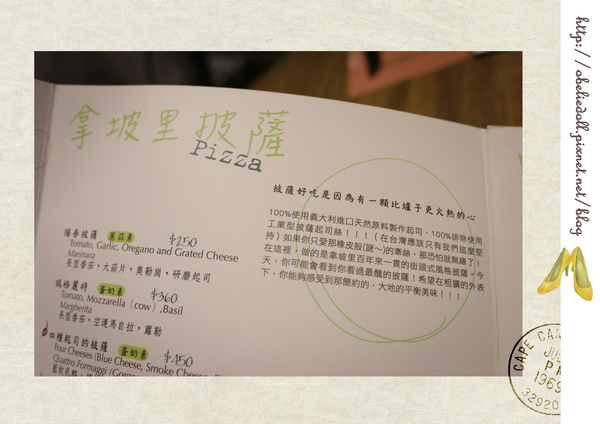 拿坡里披薩
Pizza
陽春披薩 蔥蒜素 $250
Tomato, Garlic, Oregano and Grated Cheese
Marinara
長型番茄，大蒜片，奧勒崗，研磨起司
瑪格麗特 蛋奶素 $360
Tomato, Mozzarella（cow）,Basil
Margherita
長型番茄，空運馬自拉，羅勒
四種起司的披薩 蛋奶素 $450
Four Cheeses (Blue Cheese, Smoke Cheese,
Quattro Formaggi
披薩好吃是因為有一顆比爐子更火熱的心
100%使用義大利進口天然原料製作起司，100%排除使用
工業型披薩起司絲！！！（在台灣應該只有我們這麼堅
持）如果你只愛那橡皮般(謎~)的牽絲，那恐怕就無緣了！
在這裡，做的是拿坡里百年來一貫的街頭式風格披薩，今
天，你可能會看到你看過最醜的披薩！希望在粗獷的外表
下，你能夠感受到那簡約的，大地的平衡美味！！！
http://obeliedoll.pixnet.net/blog
CAPE CAN
1969
32920